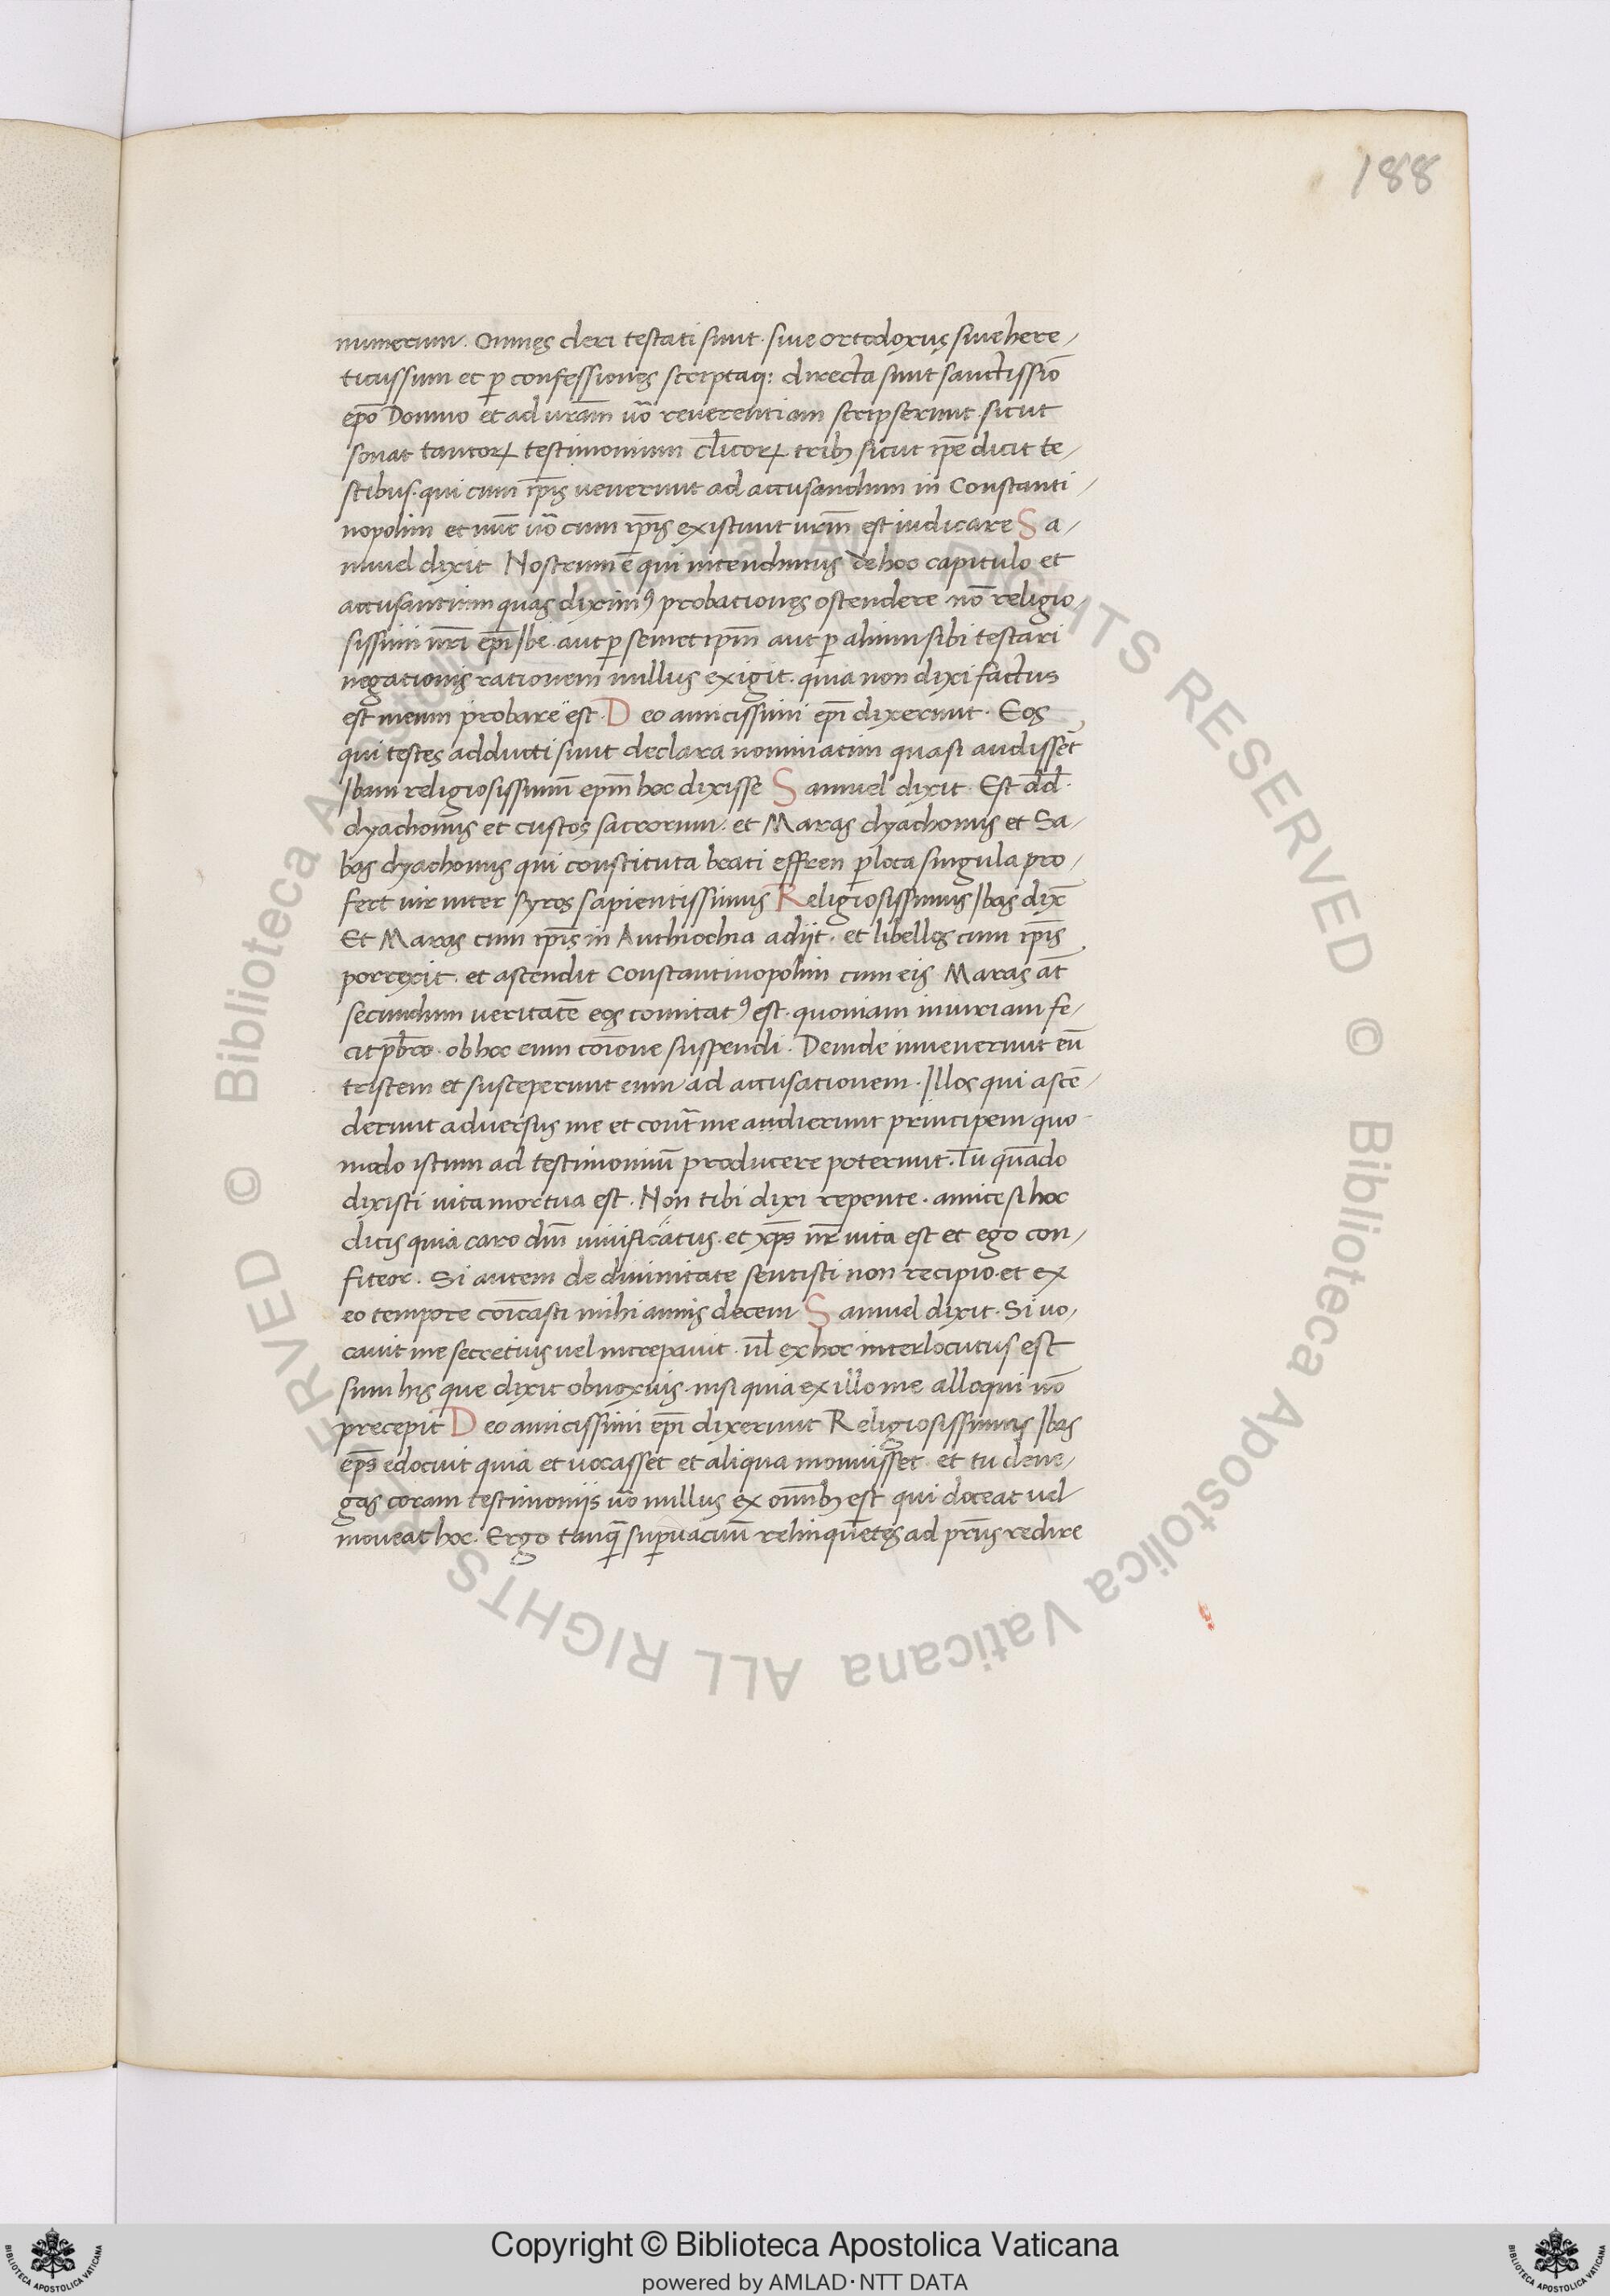 188
numerum. Omnes cleri testati sunt. sive ortodoxus sive here-
ticus sum et p̱ confessiones scriptaq: directa sunt sanctissio̅
epo̅ Domno et ad ura̅m uo̅ reverentiam scripserunt. sicut
sonat tantoꝝ testimonium cl̅icoꝝ tribꝫ sicut ip̅e dicit te-
stibus. qui cum ip̅is venerunt ad accusandum in Constanti-
nopolim et nu̅c uo̅ cum ip̅is existunt ur̅m est iudicare Sa-
muel dixit Nostrum e̅ qui intendimus de hoc capitulo et
accusantium quas diximꝰ probationes ostendere. no̅ religio-
sissimi nr̅i epi̅ Ibe. aut ꝑ semet ip̅m aut ꝑ alium sibi testari
negationis rationem nullus exigit. quia non dixi factus
est meum probare est. Deo amicissimi epi̅ dixerunt. Eos
qui testes adducti sunt declara nominatim quasi audisse̅t
Ibam religiosissimu̅ epm̅ hoc dixisse Samuel dixit. Est d̅d̅.
dyachonus et custos sacrorum. et Maras dyachonus et Sa-
bas dyachonus qui constituta beati effren ꝑ loca singula pro-
fert vir inter syros sapientissimus Religiosissimus Ibas dix̅
Et Maras cum ip̅is in Anthiochia adijt. et libellos cum ip̅is
porrexit. et ascendit Constantinopolim cum eis Maras at̅
secundum veritate̅ eos comitatꝰ est. quoniam iniuriam fe-
cit p̅b̅r̅o. ob hoc eum co̅ione suspendi. Deinde invenerunt eu̅
tristem et susceperunt eum ad accusationem. Illos qui asce̅-
derunt adversus me et cont̅ me audierunt principem quo
modo istum ad testimoniu̅ producere poterunt. Tu qua̅do
dixisti vita mortua est. Non tibi dixi repente. amice si hoc
dicis quia caro dni̅ vivificatus. et xps̅ nr̅ vita est et ego con-
fiteor. Si autem de divinitate sentisti non recipio. et ex
eo tempore coi̅casti mihi annis decem Samuel dixit. Si vo-
cavit me secretius vel increpavit. ul̅ ex hoc interlocutus est
sum his que dixit obnoxius. nisi quia ex illo me alloqui no̅
precepit Deo amicissimi epi̅ dixerunt Religiosissimus Ibas
eps̅ edocuit quia et vocasset et aliqua monuisset. et tu dene-
gas coram testimonijs uo̅ nullus ex omnibꝫ est qui doceat vel
moveat hoc. Ergo tanqꝫ suꝑvacuu̅ relinque̅tes ad pri̅us redire
Copyright © Biblioteca Apostolica Vaticana
powered by AMLAD·NTT DATA
© Biblioteca Apostolica Vaticana ALL RIGHTS RESERVED
© Biblioteca Apostolica Vaticana ALL RIGHTS RESERVED
BIBLIOTECA APOSTOLICA VATICANA
BIBLIOTECA APOSTOLICA VATICANA